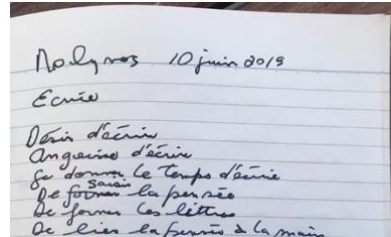 Molynos 10 juin 2019
Ecrire
Désir d'écrire
Angoisse d'écrire
Se donner le temps d'écrire
De saisir la pensée
De former les lettres
De lier la pensée à la main